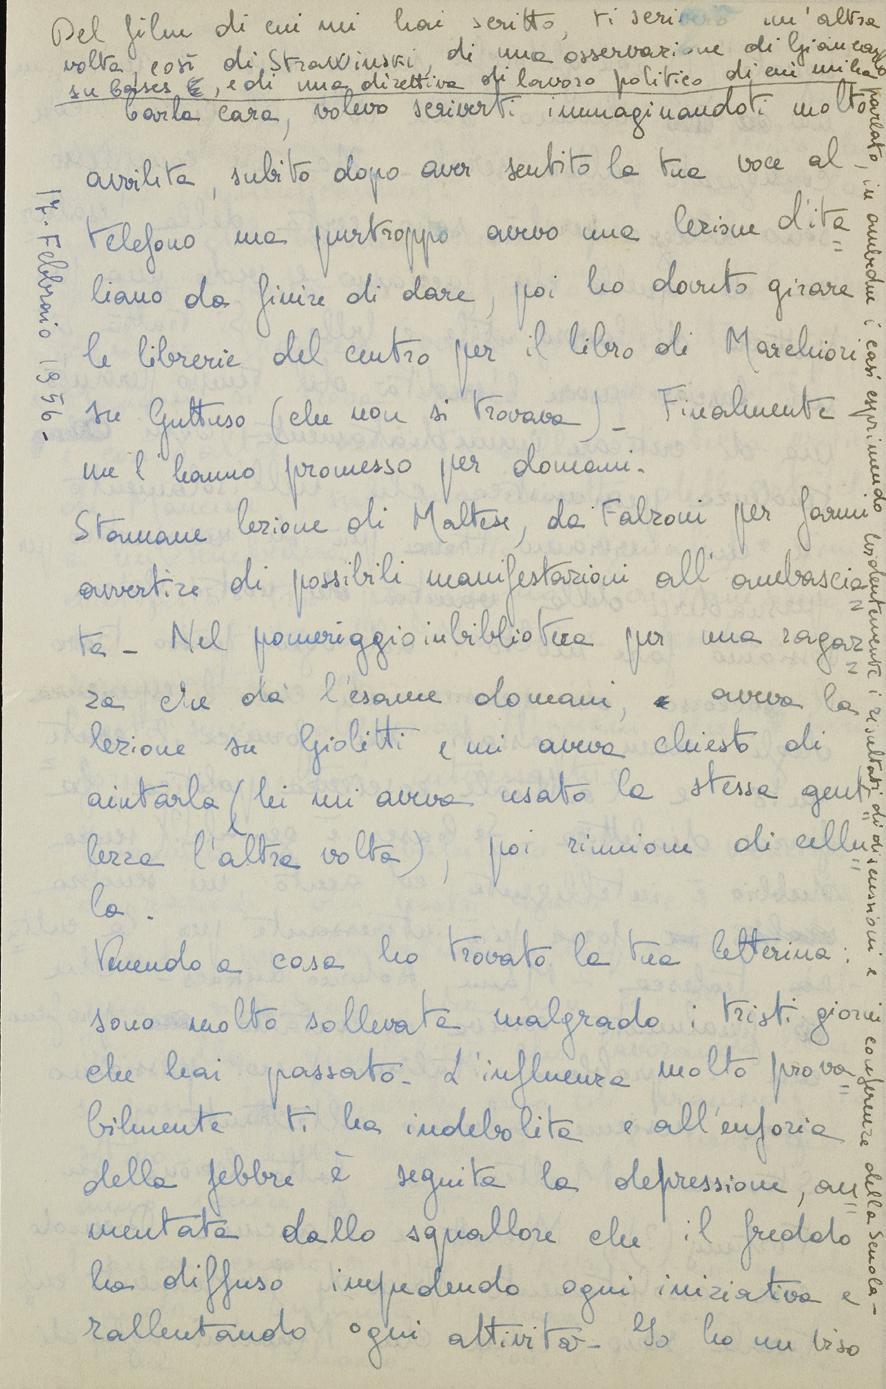 Del film di cui mi hai scritto, ti scriverò un'altra
volta, così di StraWinski, di una osservazione di Giancarlo
su Basses, e di una direttiva di lavoro politico di cui mi ha
parlato, in ambedue i casi esprimendo evidentemente i risultati di discussioni e conferenze della Scuola-
17. Febbraio 1956-
Carla cara, volevo scriverti immaginandoti molto
avvilita, subito dopo aver sentito la tua voce al
telefono ma purtroppo avevo una lezione d'ita=
liano da finire di dare, poi ho dovuto girare
le librerie del centro per il libro di Marchiori
su Guttuso (che non si trovava)_ Finalmente
me l'hanno promesso per domani.
Stamane lezione di Maltese, da Falzoni per farmi
avvertire di possibili manifestazioni all'ambascia=
ta - Nel pomeriggio in biblioteca per una ragaz=
za che dà l'esame domani, aveva la
lezione su Giolitti e mi aveva chiesto di
aiutarla (lei mi aveva usato la stessa genti=
lezza l'altra volta), poi riunione di cellu=
la.
Venendo a casa ho trovato la tua letterina:
sono molto sollevata malgrado i tristi giorni
che hai passato. L'influenza molto proba=
bilmente ti ha indebolita e all'euforia
della febbre è seguita la depressione, au=
mentata dallo squallore che il freddo
ha diffuso impedendo ogni iniziativa e
rallentando ogni attività- Io ho un viso